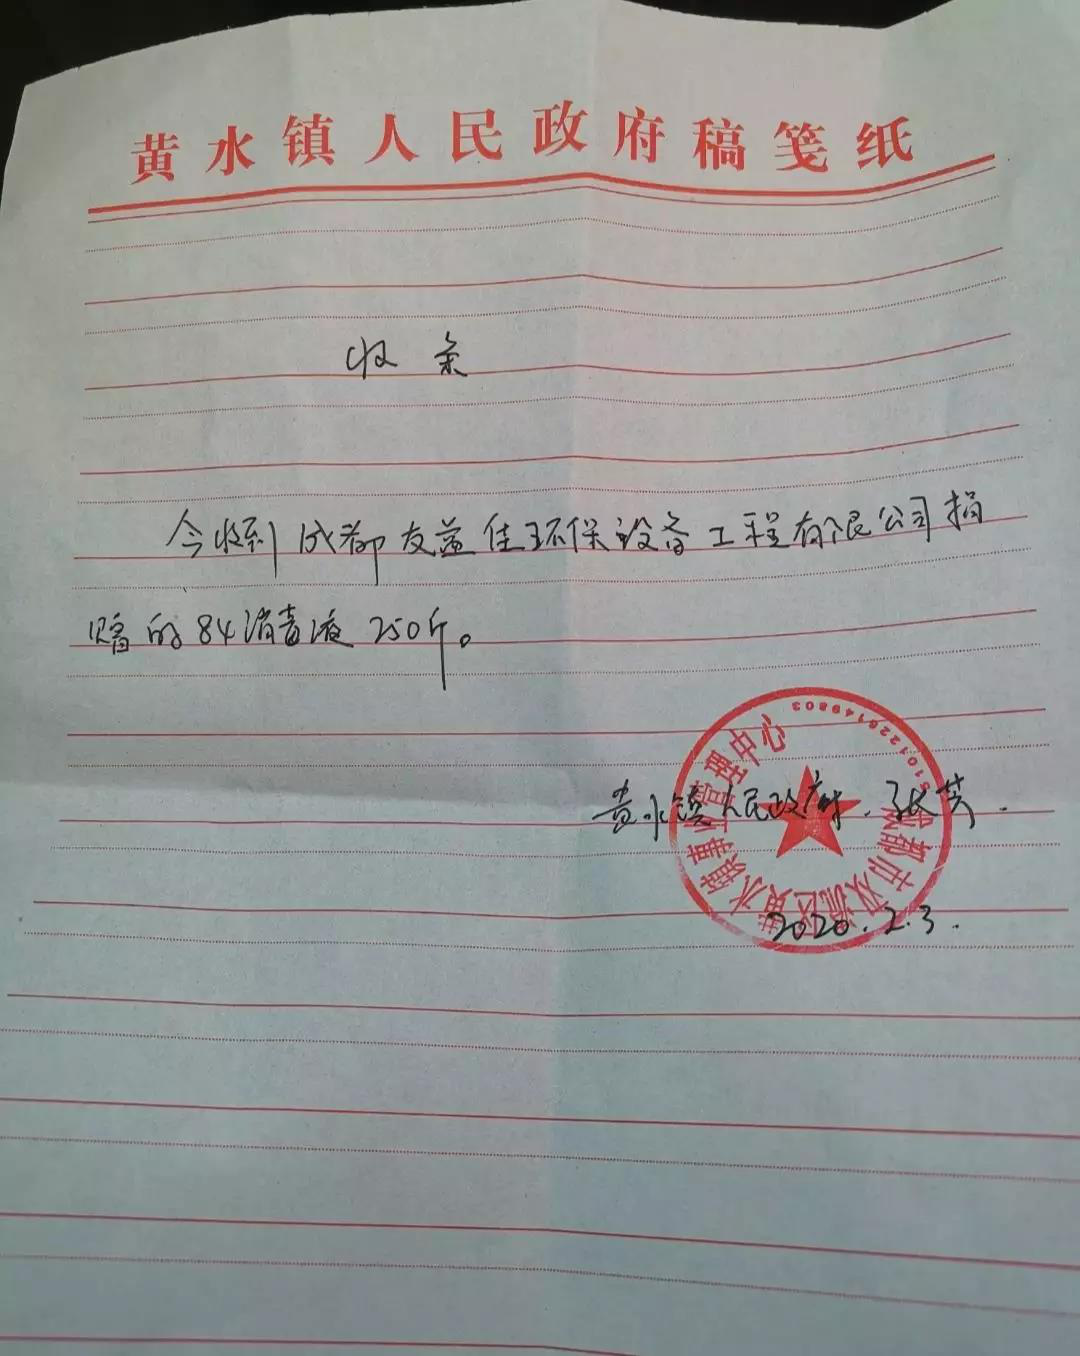 黄水镇人民政府稿笺纸
收条
今收到成都友益佳环保设备工程有限公司捐
赠的84消毒液250斤。
黄水镇人民政府.张英.
2020.2.3.
成都市双流区黄水镇事务管理中心
5101226149803